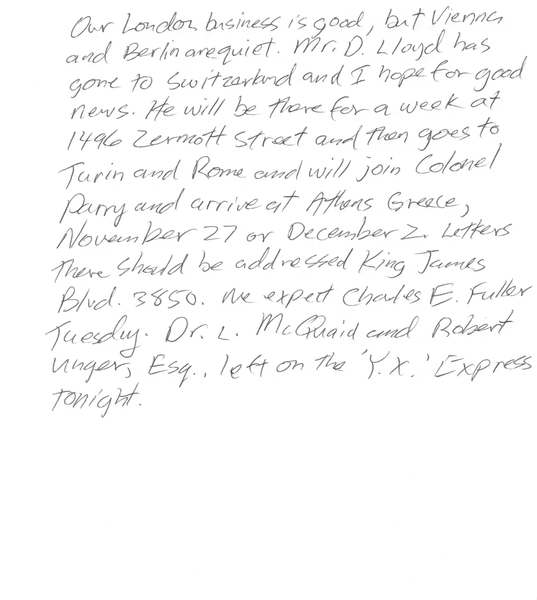 Our London business is good, but Vienna
and Berlin are quiet. Mr. D. Lloyd has
gone to Switzerland and I hope for good
news. He will be there for a week at
1496 Zermott Street and then goes to
Turin and Rome and will join Colonel
Parry and arrive at Athens Greece,
November 27 or December 2. Letters
there should be addressed King James
Blvd. 3850. We expert Charles E. Fuller
Tuesday. Dr. L. McQuaid and Robert
Unger, Esq., left on the 'Y.X.' Express
tonight.